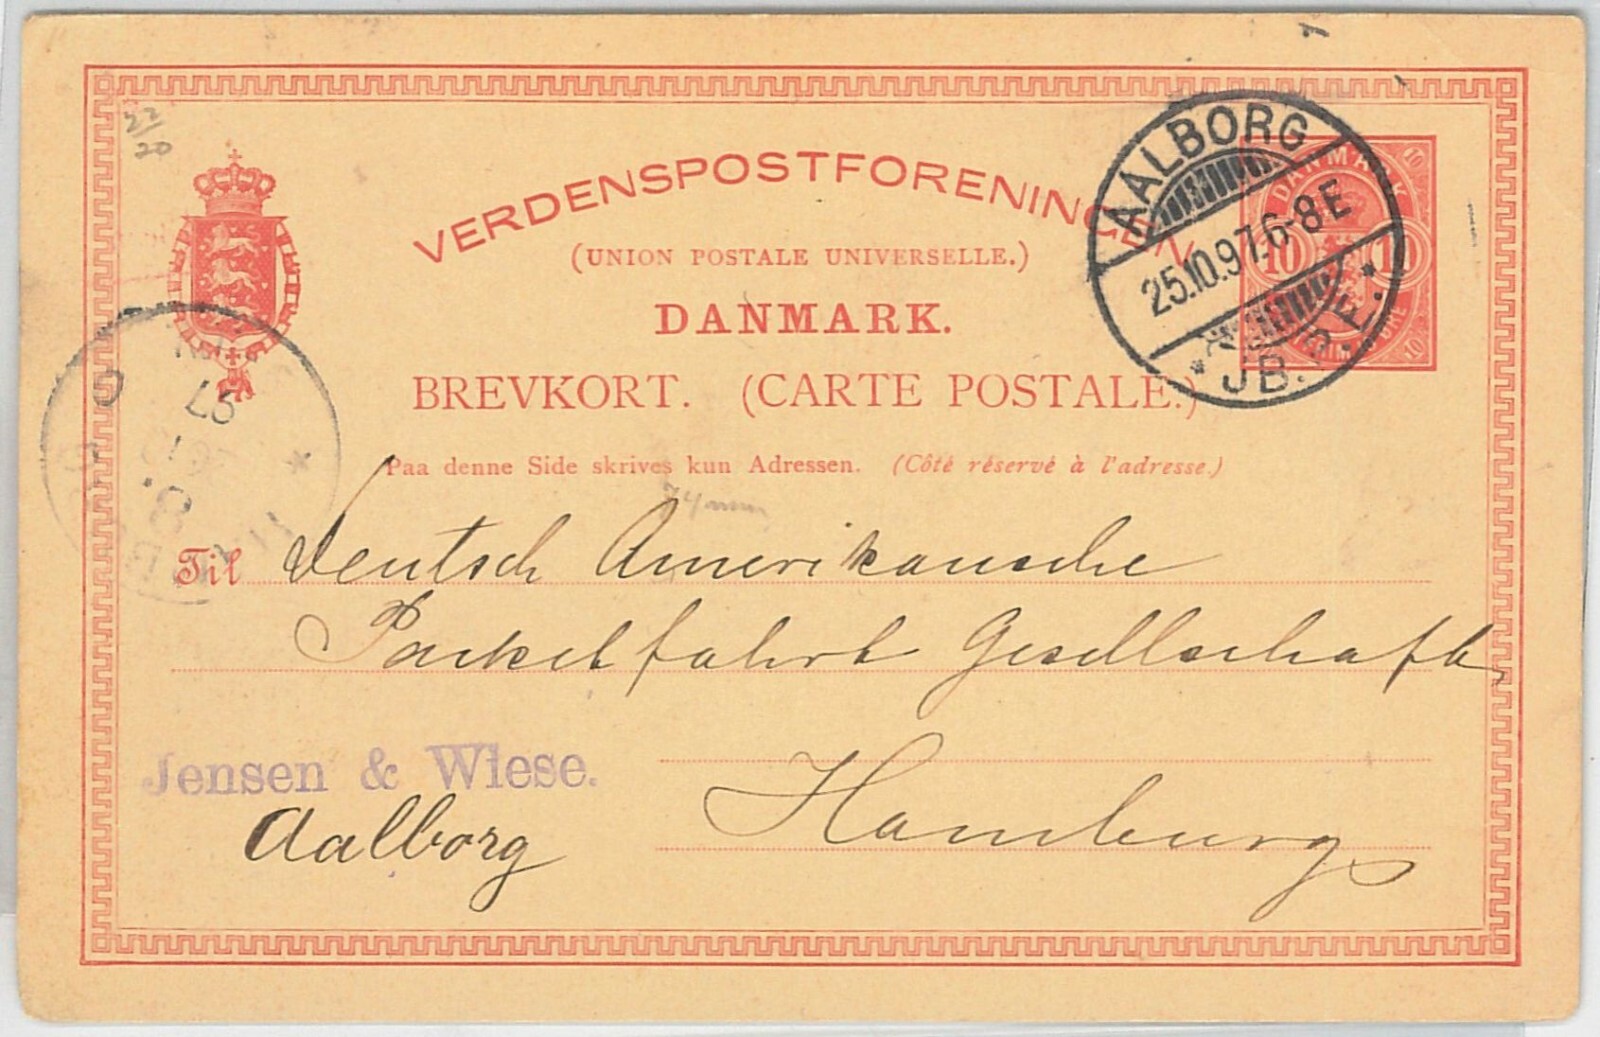 22
20
VERDENSPOSTFORENINGEN
(UNION POSTALE UNIVERSELLE.)
DANMARK.
BREVKORT. (CARTE POSTALE.)
Paa denne Side skrives kun Adressen. (Côté réservé à l'adresse.)
AALBORG
25.10.97. 6-8 E
* JB. P.E. *
DANMARK
10 10
10
10
97
74mm
Til Deutsch Amerikansche
Packetfahrt Gesellschaft
Jensen & Wiese.
Aalborg
Hamburg